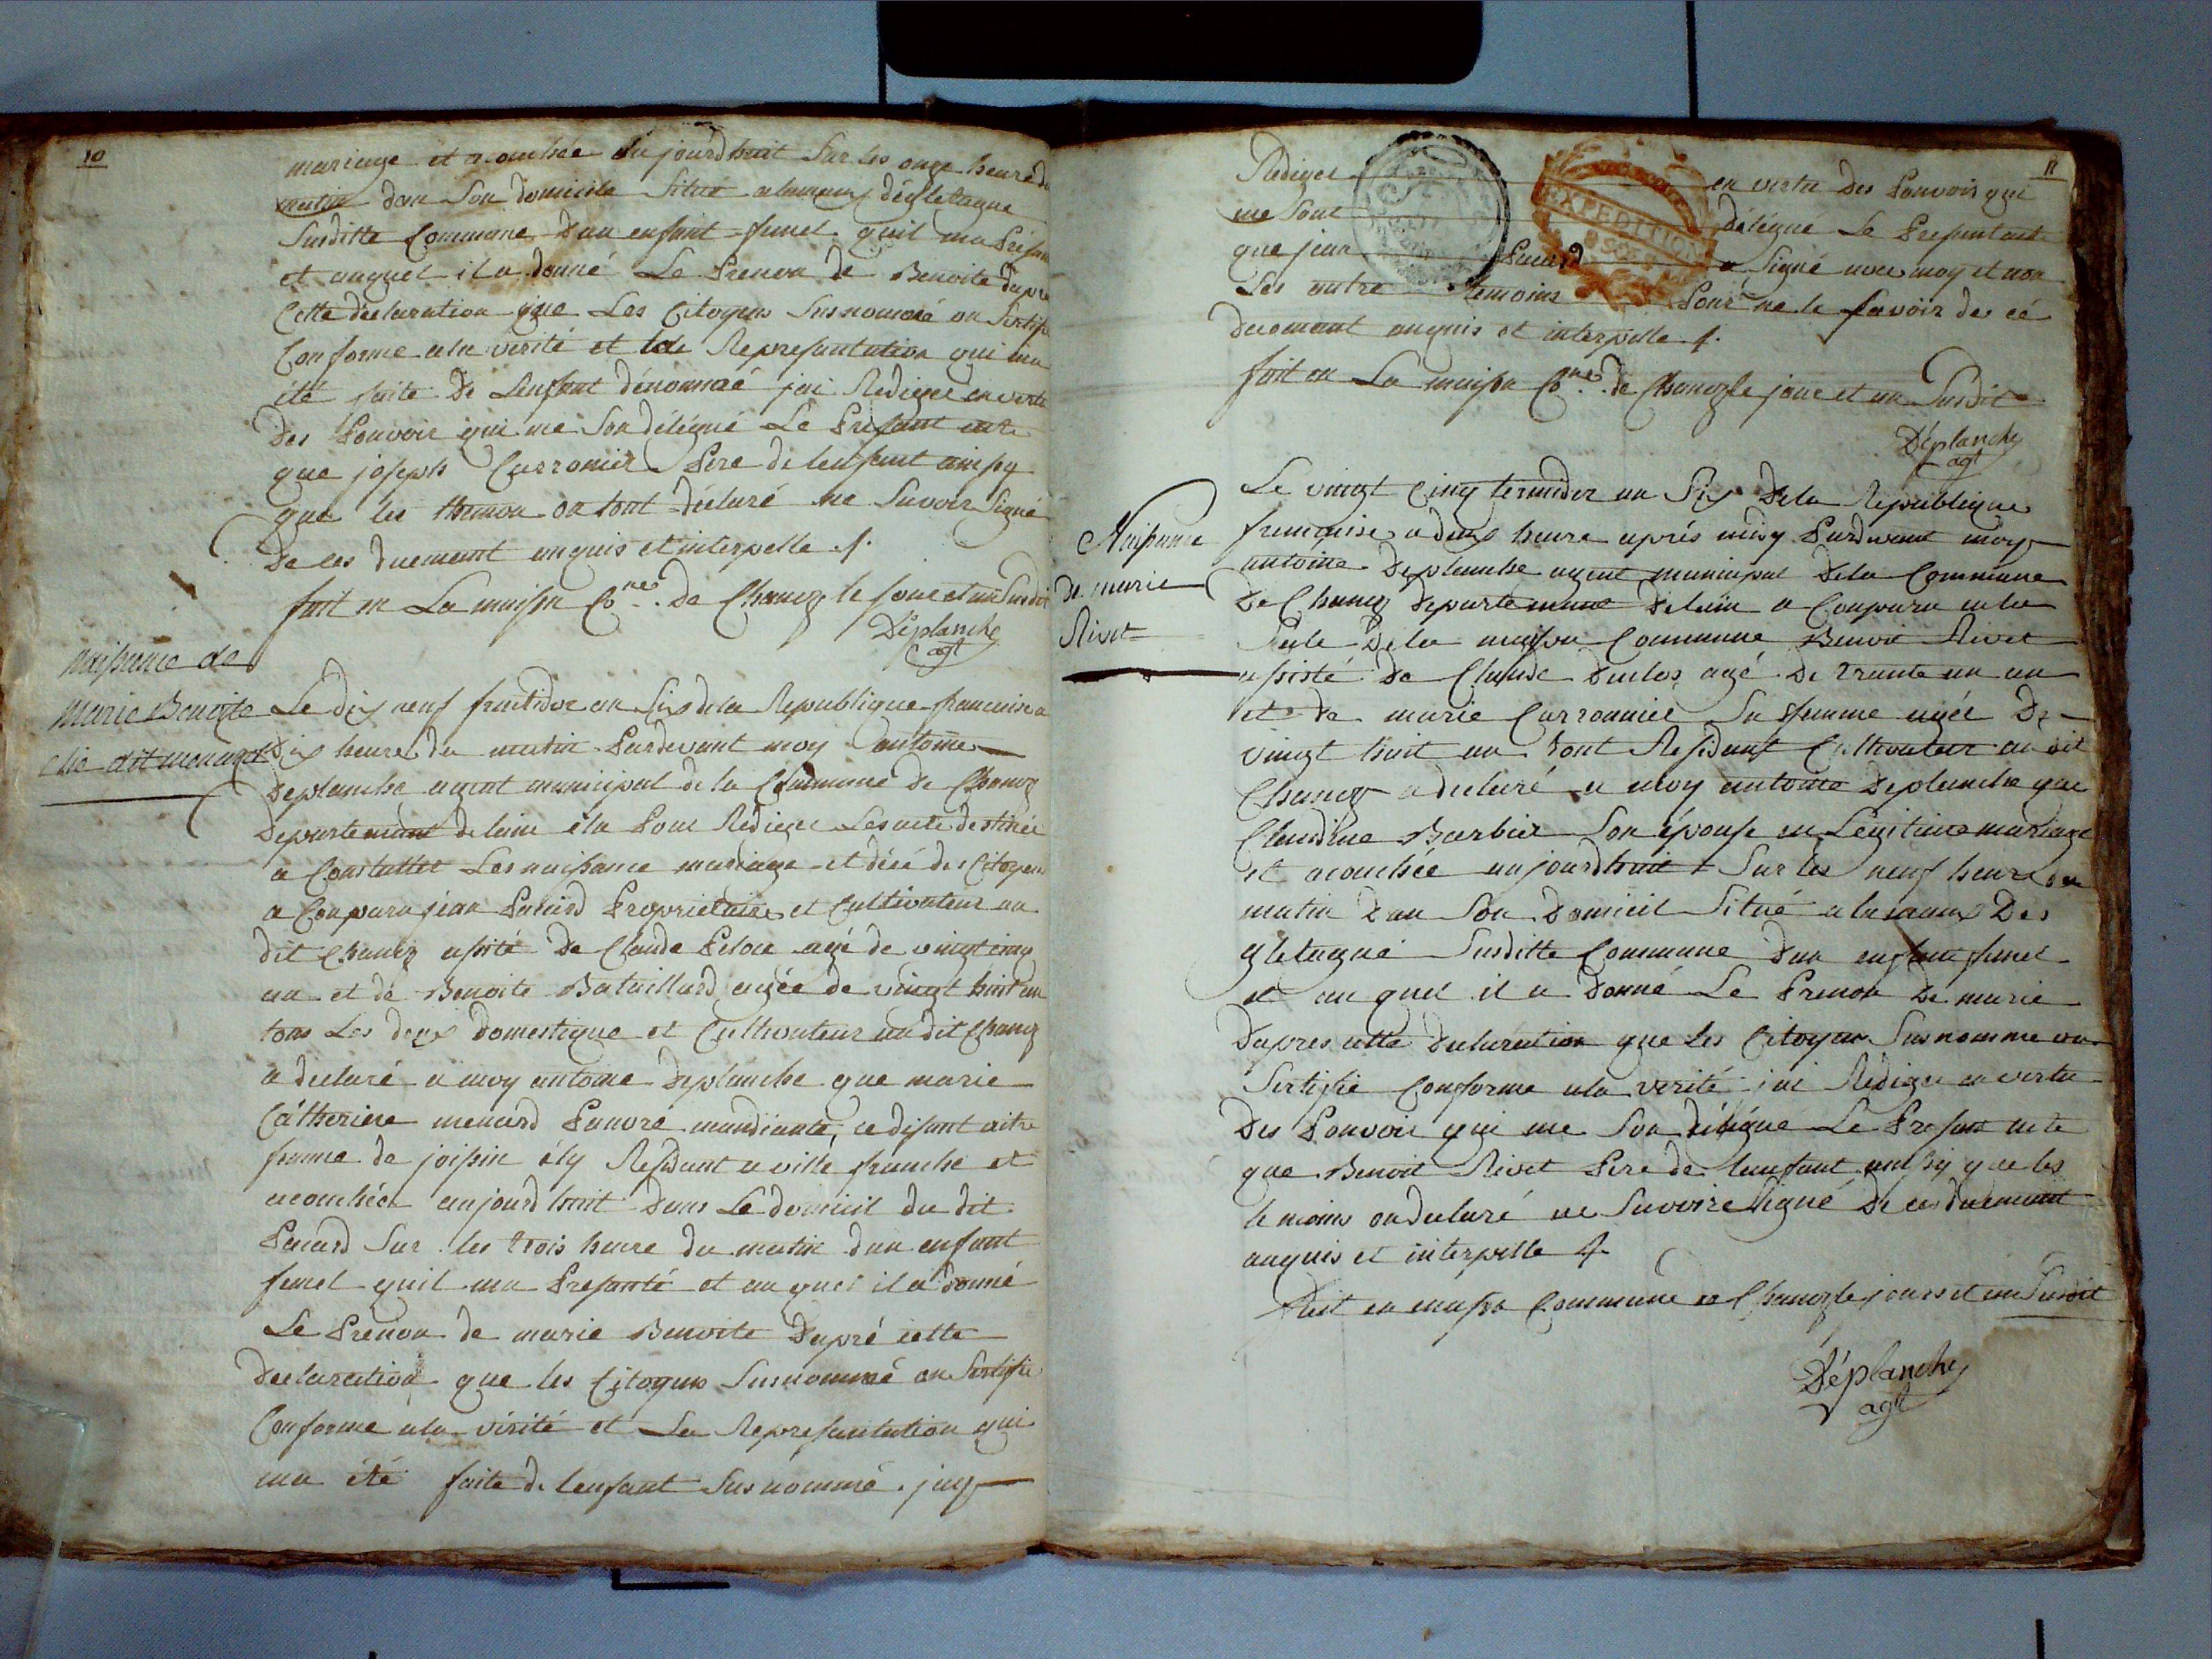 10
mariage et acouchée aujourdhuit Sur les onze heure du
matin dan Son domicile Situé alamaux déglletagne
Susditte Commune Dun enfant femel quil ma Présan
et auquel il a donné Le Prenon de Benoite dapré
Cette déclaration que Les Citoyens Susnommé on Sertifi
Conforme ala verité et lade Represantation qui ma
été faite De Lenfant dénommé jai Rediger en vertu
des Pouvoir qui me Son délégué Le Présant acte
que joseph Carronnier Pere de lenfant ainsy
que les témon on tout déclaré ne Savoir Signé
de ces duemant enquis et interpelle ./.
fait en La maison Cone. de Chanez le jour et an Susdit
Déplanche
agt
naissance de
Marie Benoite
élie dit menard
Le Dix neuf fruitidor an Six dela Republique francaise a
Dix heure du matin Pardevant moy antoine
Deplanche agent municipal de la Commune De Chanez
Departemant de lain élu Pour Rediger Les acte destinée
a Constatter Les naissance mariage et désé des Citoyens
a Comparu jean Pacard Proprietaire et Cultivateur au
dit Chanez assité De Claude Pelore agé de vingt cinq
an et de Benoite Bataillard agée de vingt huit an
tous Les deux Domestique et Cultivateur audit Chanez
a declaré a moy antoine Deplanche que marie
Catherine menard Pauvre mandiante, ce disant aitre
femme de joispin ély Residant a ville franche et
acouchée aujourdhuit dans Le domicil du dit
Pacard Sur les trois heure du matin dun enfant
femel quil ma Presanté et au quel il a donné
Le Prenon de marie Benoite Dapré cette
declaration que les Citoyens Susnommé on Sertifie
Conforme ala vérité et La Represantation qui
ma été faite de lenfant Susnommé jay
11
Rediger en vertu des Pouvoir qui
me Sont délégué Le Presant acte
que jean Pacard a Signé avec moy et non
Les autre temoins Pour ne le Savoir de cé
duemant anquis et interpelle ./.
fait en La maison Cone. de Chanez le jour et an Susdit
EXPEDITION
Déplanche
agt
Naissance
de marie
Rivet
Le vingt Cinq termidor an Six Dela Republique
francaise a deux heure aprés midy Pardevant moy
antoine Deplanche agent municipal Dela Commune
De Chanez departemant Delain a Comparu enla
Sale Dela maison Commune Benoit Rivet
assisté De Claude Duclos agé De trante un an
et De marie Carronnier Sa femme agée De
vingt huit an tont Residant Cultivateur au dit
Chanez a declaré a moy antoine Deplanche que
Claudine Barbier Son épouse en Legitime mariage
et acouchée aujourdhuit Sur les neuf heure du
matin Dan Son Domicil Situé alamaux Des
gletagne Susditte Commune Dun enfant femel
et au quel il a Donné Le Prenon De marie
Dapres cette Declaration que les Citoyen Susnomme on
Sertifie Conforme ala verité jai Rediger en vertu
Des Pouvoir qui me Son délégué Le Presant acte
que Benoit Rivet Pere de lanfant ansy que les
temoins on declaré ne Savoire Signé De ce duemant
anquis et interpelle ./.
Fait en maison Commune a Chaneze le jours et an Susdit
Déplanche
agt